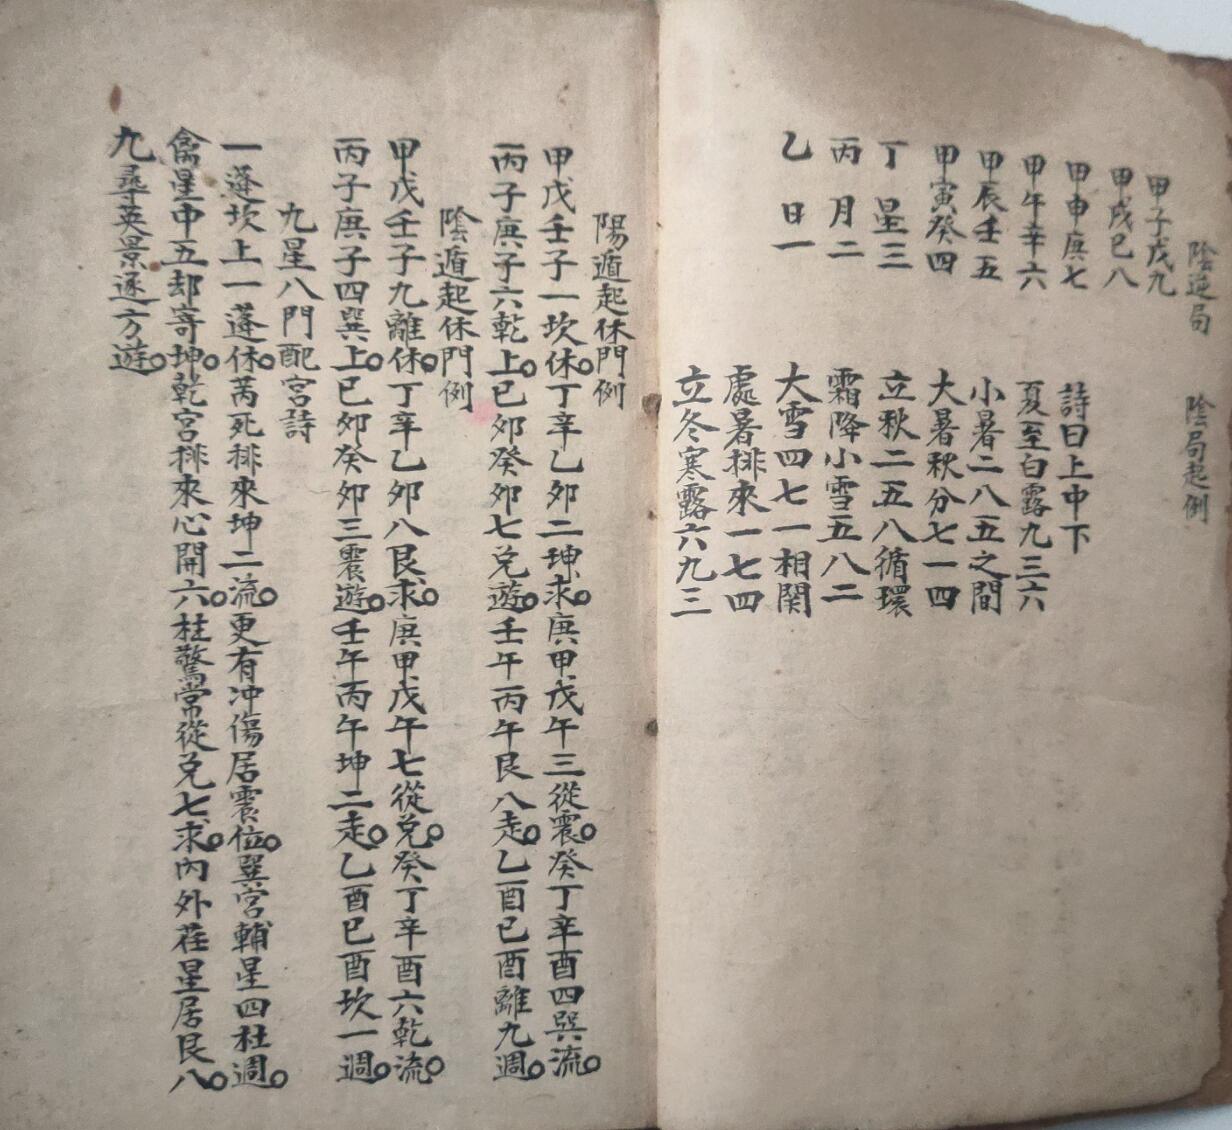 陰逆局
陰局起例
甲子戊九
甲戌巳八
甲申庚七
甲午辛六
甲辰壬五
甲寅癸四
丁星三
丙月二
乙日一
詩曰上中下
夏至白露九三六
小暑二八五之間
大暑秋分七一四
立秋二五八循環
霜降小雪五八二
大雪四七一相関
處暑排來一七四
立冬寒露六九三
陽遁起休門例
甲戊壬子一坎休。丁辛乙夘二坤求。庚甲戊午三從震。癸丁辛酉四巽流。
丙子庚子六乾上。巳夘癸夘七兑遊。壬午丙午艮八走。乙酉巳酉離九週。
陰遁起休門例
甲戊壬子九離休。丁辛乙夘八艮求。庚甲戊午七從兑。癸丁辛酉六乾流。
丙子庚子四巽上。巳夘癸夘三震遊。壬午丙午坤二走。乙酉巳酉坎一週。
九星八門配宮詩
一蓬坎上一蓬休。芮死排來坤二流。更有冲傷居震位。巽宮輔星四杜週。
禽星中五却寄坤。乾宮排來心開六。柱驚常從兑七求。內外荏星居艮八。
九尋英景逐方遊。